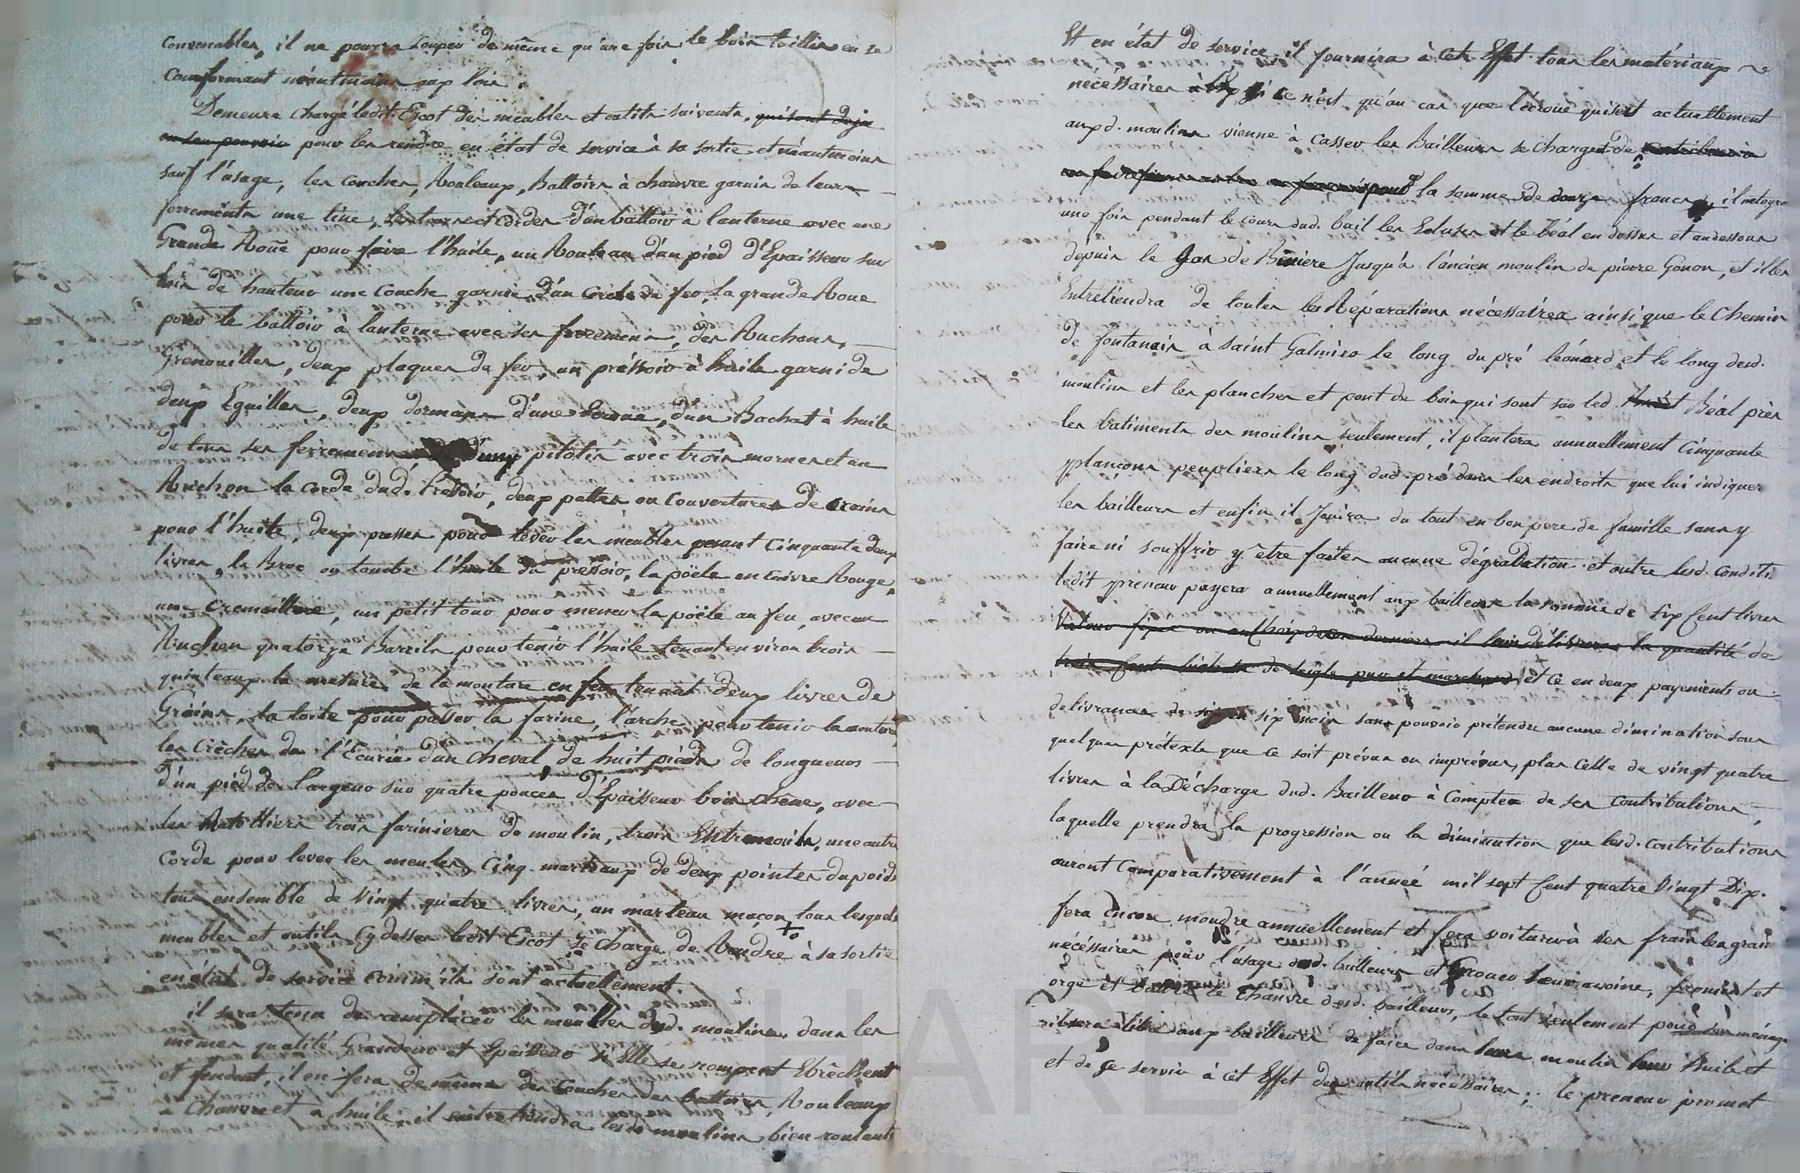 convenables, il ne pourra couper de même qu'une fois le bois taillis en se
conformant néantmoins aux lois.
Demeure chargé ledit Escot des meubles et outils suivants, qui sont deja
en son pouvoir pour les rendre en état de service à sa sortie et néantmoins
sauf l'usage, les conches, Rouleaux, Battoirs à chanvre garnis de leurs
ferrements une tine, d'un battoir à lanterne avec une
Grande Roüe pour faire l'huile, un Rouleau d'un pied d'Epaisseur sur
trois de hauteur une Conche garnie d'un Cercle de fer, la grande Roue
pour le battoir à lanterne avec ses ferremens, des Ruchons,
Grenouilles, deux plaques de fer, un préssoir à huile garni de
deux Eguilles, deux dormans d'une, d'un Bachat à huile
de tous ses ferremens deux pilotis avec trois mornes et un
Ruchon la corde dud. Pressoir, deux pattes ou Couvertures de crains
pour l'huile, deux presses pour lever les meubles pesant Cinquante deux
livres, le Broc ou tombe l'huile du pressoir, la poële en cuivre Rouge,
une Cremaillere, un petit tour pour mener la poële au feu, avec un
Ruchon quatorze Barrils pour tenir l'huile tenant environ trois
quinteaux la mesure de la mouture en fer tenant deux livres de
Grains, la toile pour passer la farine, l'arche pour tenir la mouture
les Crèches de l'Ecurie d'un Cheval de huit pieds de longueur
d'un pied de largeur sur quatre pouces d'Epaisseur bois chêne, avec
les Ratelliers trois farinieres de moulin, trois Entremoits, une autre
Corde pour lever les meules, Cinq marteaux de deux pointes du poids
tous ensemble de Vingt quatre livres, un marteau maçon, tous lesquels
meubles et outils Cy dessus ledit Escot se charge de Rendre à sa sortie
en état de service comm'ils sont actuellement.
il sera tenu de remplacer les meulles dud. moulins, dans les
mêmes qualité Grandeur et Epaisseur si Elle se rompent Ebrêchent
et fendent, il en fera de même des Conches des battoirs, Rouleaux
à Chanvre et à huile, il entretiendra lesd. moulins bien roulants
Et en état de service, il fournira à cet Effet tous les matériaux
nécéssaires si ce n'est qu'au cas que l'écroue qui est actuellement
aux d. moulins vienne à casser les Bailleurs se chargent de contribuer
la somme de douze francs, il netoyra
une fois pendant le cours dud. bail les Ecluses et le Béal en dessus et en dessous
depuis le Gas de Biniere Jusqu'à l'ancien moulin de pierre Gonon, et il les
Entretiendra de toutes les Réparations nécéssaires ainsi que le Chemin
de fontanais à saint Galmier le long du pré léonard et le long desd.
moulins et les planches et pont de bois qui sont sur led. Béal près
les batiments des moulins seulement, il plantera annuellement Cinquante
plançons peupliers le long dud. pré dans les endroits que lui indiquer
les bailleurs et enfin il Jouira du tout en bon pere de famille sans y
faire ni souffrir y être faites aucune dégradation et outre lesd. Conditi
ledit preneur payera annuellement aux bailleurs la somme de six Cent livres
Valeur fixe ou au Choix de ces derniers il leur délivrera la quantité de
trois Cent bichets de seigle pur et marchand, et ce en deux payements ou
délivrances de six en six mois sans pouvoir prétendre aucune diminution sous
quelques prétexte que ce soit prévus ou imprévus, plus Celle de vingt quatre
livres à la Décharge dud. Bailleur à Comptes de ses Contributions,
laquelle prendra la progression ou la diminution que lesd. contributions
auront Comparativement à l'année mil sept Cent quatre Vingt Dix.
fera Encore moudre annuellement et fera voiturer à ses frais les grains
nécéssaires pour l'usage dud. bailleurs et Gruer leurs avoine, froment et
orge et battre le Chanvre desd. bailleurs, le tout seulement pour leur ménage
sera libre aux bailleurs de faire dans leurs moulin leur Huile et
et de se servir à cet Effet des outils nécéssaires; le preneur promet
HARE